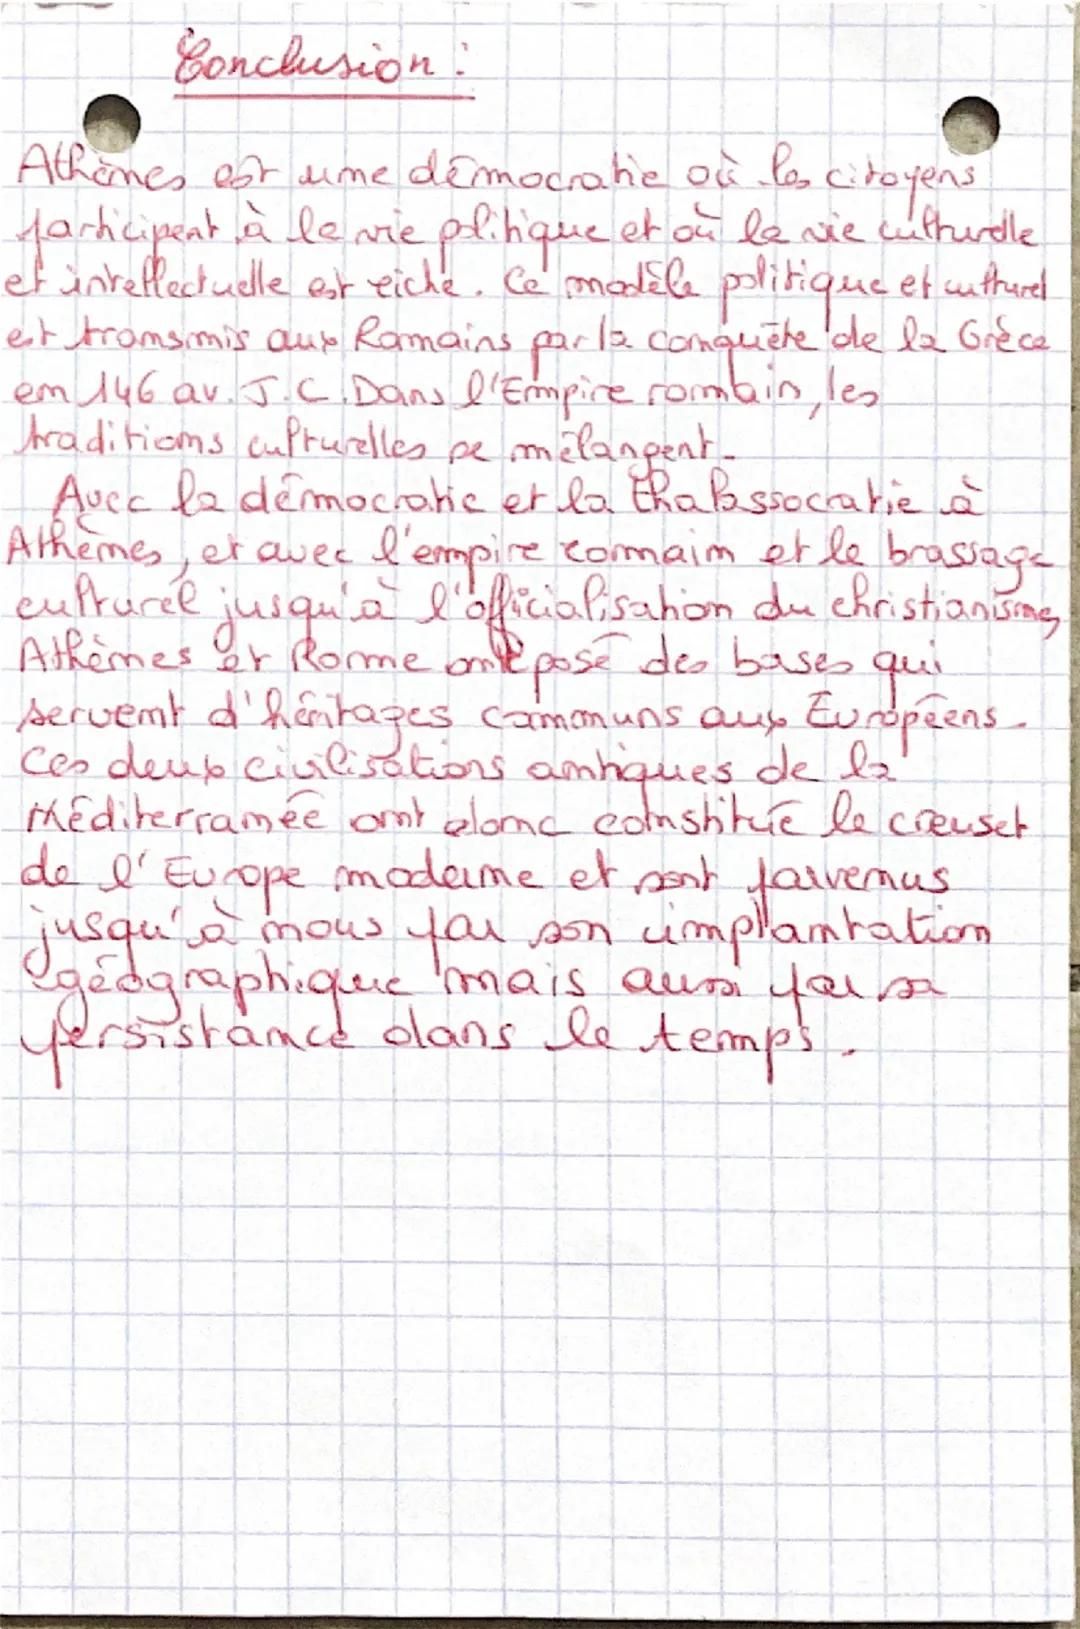 Conclusion :
Athènes est une démocratie où les citoyens
participent à la vie politique et où la vie culturelle
et intellectuelle est riche. Ce modèle politique et culturel
est transmis aux Romains par la conquête de la Grèce
en 146 av. J.C. Dans l'Empire romain, les
traditions culturelles se mélangent.
Avec la démocratie et la thalassocratie à
Athènes, et avec l'empire romain et le brassage
culturel jusqu'à l'officialisation du christianisme,
Athènes et Rome ont posé des bases qui
servent d'héritages communs aux Européens.
Ces deux civilisations antiques de la
Méditerranée ont donc constitué le creuset
de l'Europe moderne et sont parvenus
jusqu'à nous par son implantation
géographique mais aussi par sa
persistance dans le temps.